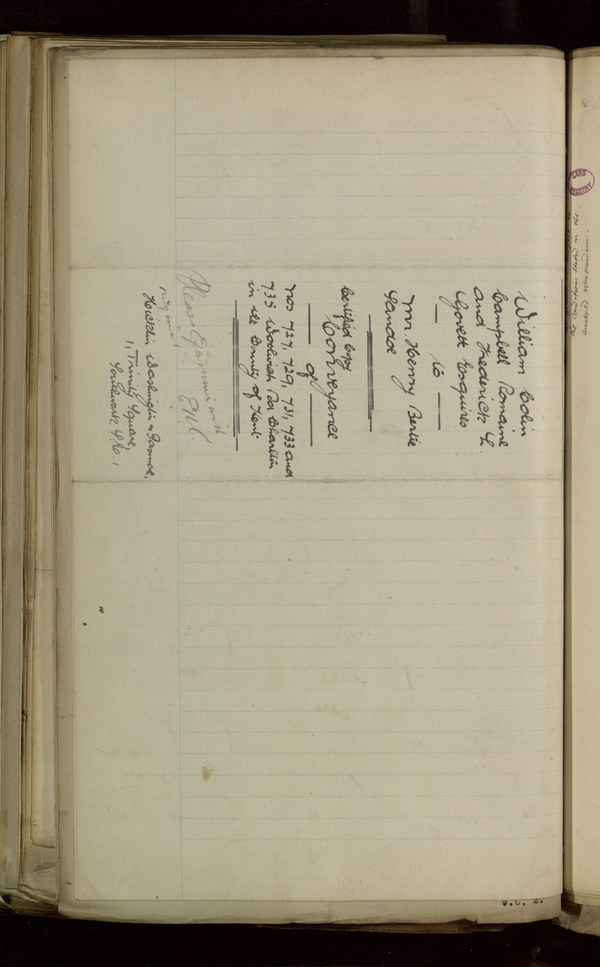 William Colin
Campbell Romaine
and Frederick L.
Govett Esquires
to
Mr. Henry Bertie
Sandoe
Certified Copy
Conveyance
of
Nos 727, 729, 731, 733 and
735 Woolwich Rd Charlton
in the County of Kent
Please
1, Trinity Square,
Southwark S.E.1